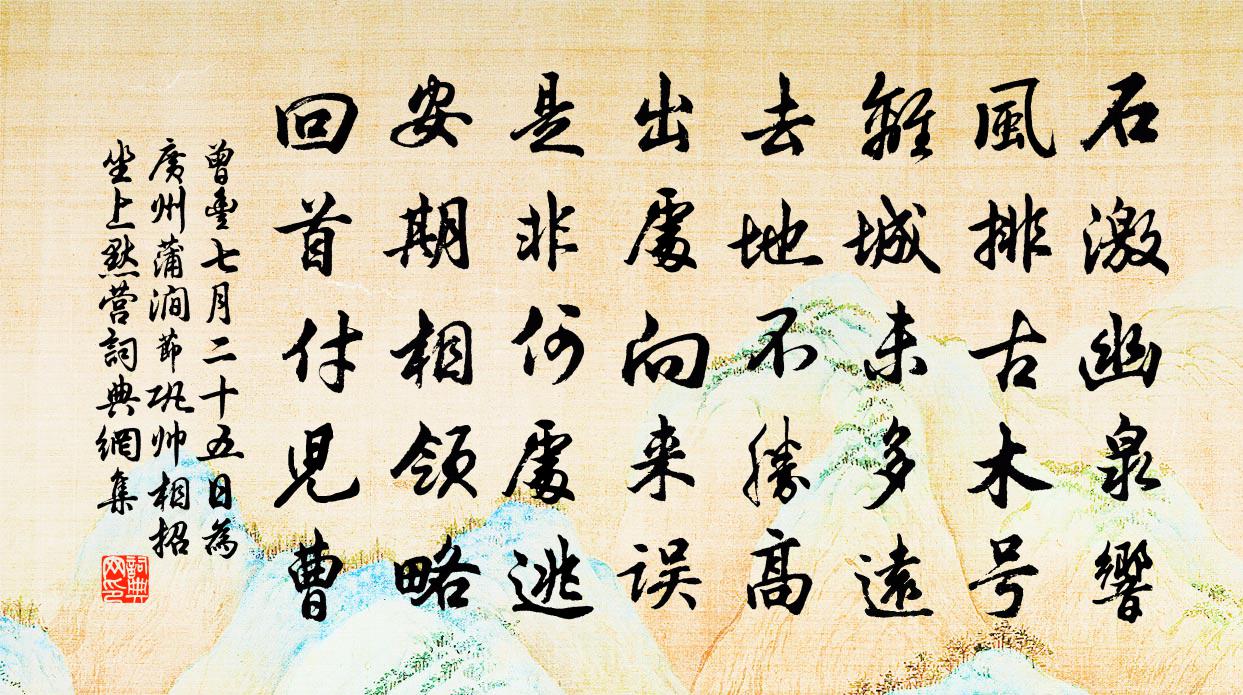 石激幽泉響
風排古木号
離城未多遠
去地不勝高
出處向来誤
是非何處逃
安期相領略
回首付兒曹
曾豊七月二十五日為
廣州蒲澗節巩帅相招
坐上黙营詞典網集
詞典
网印